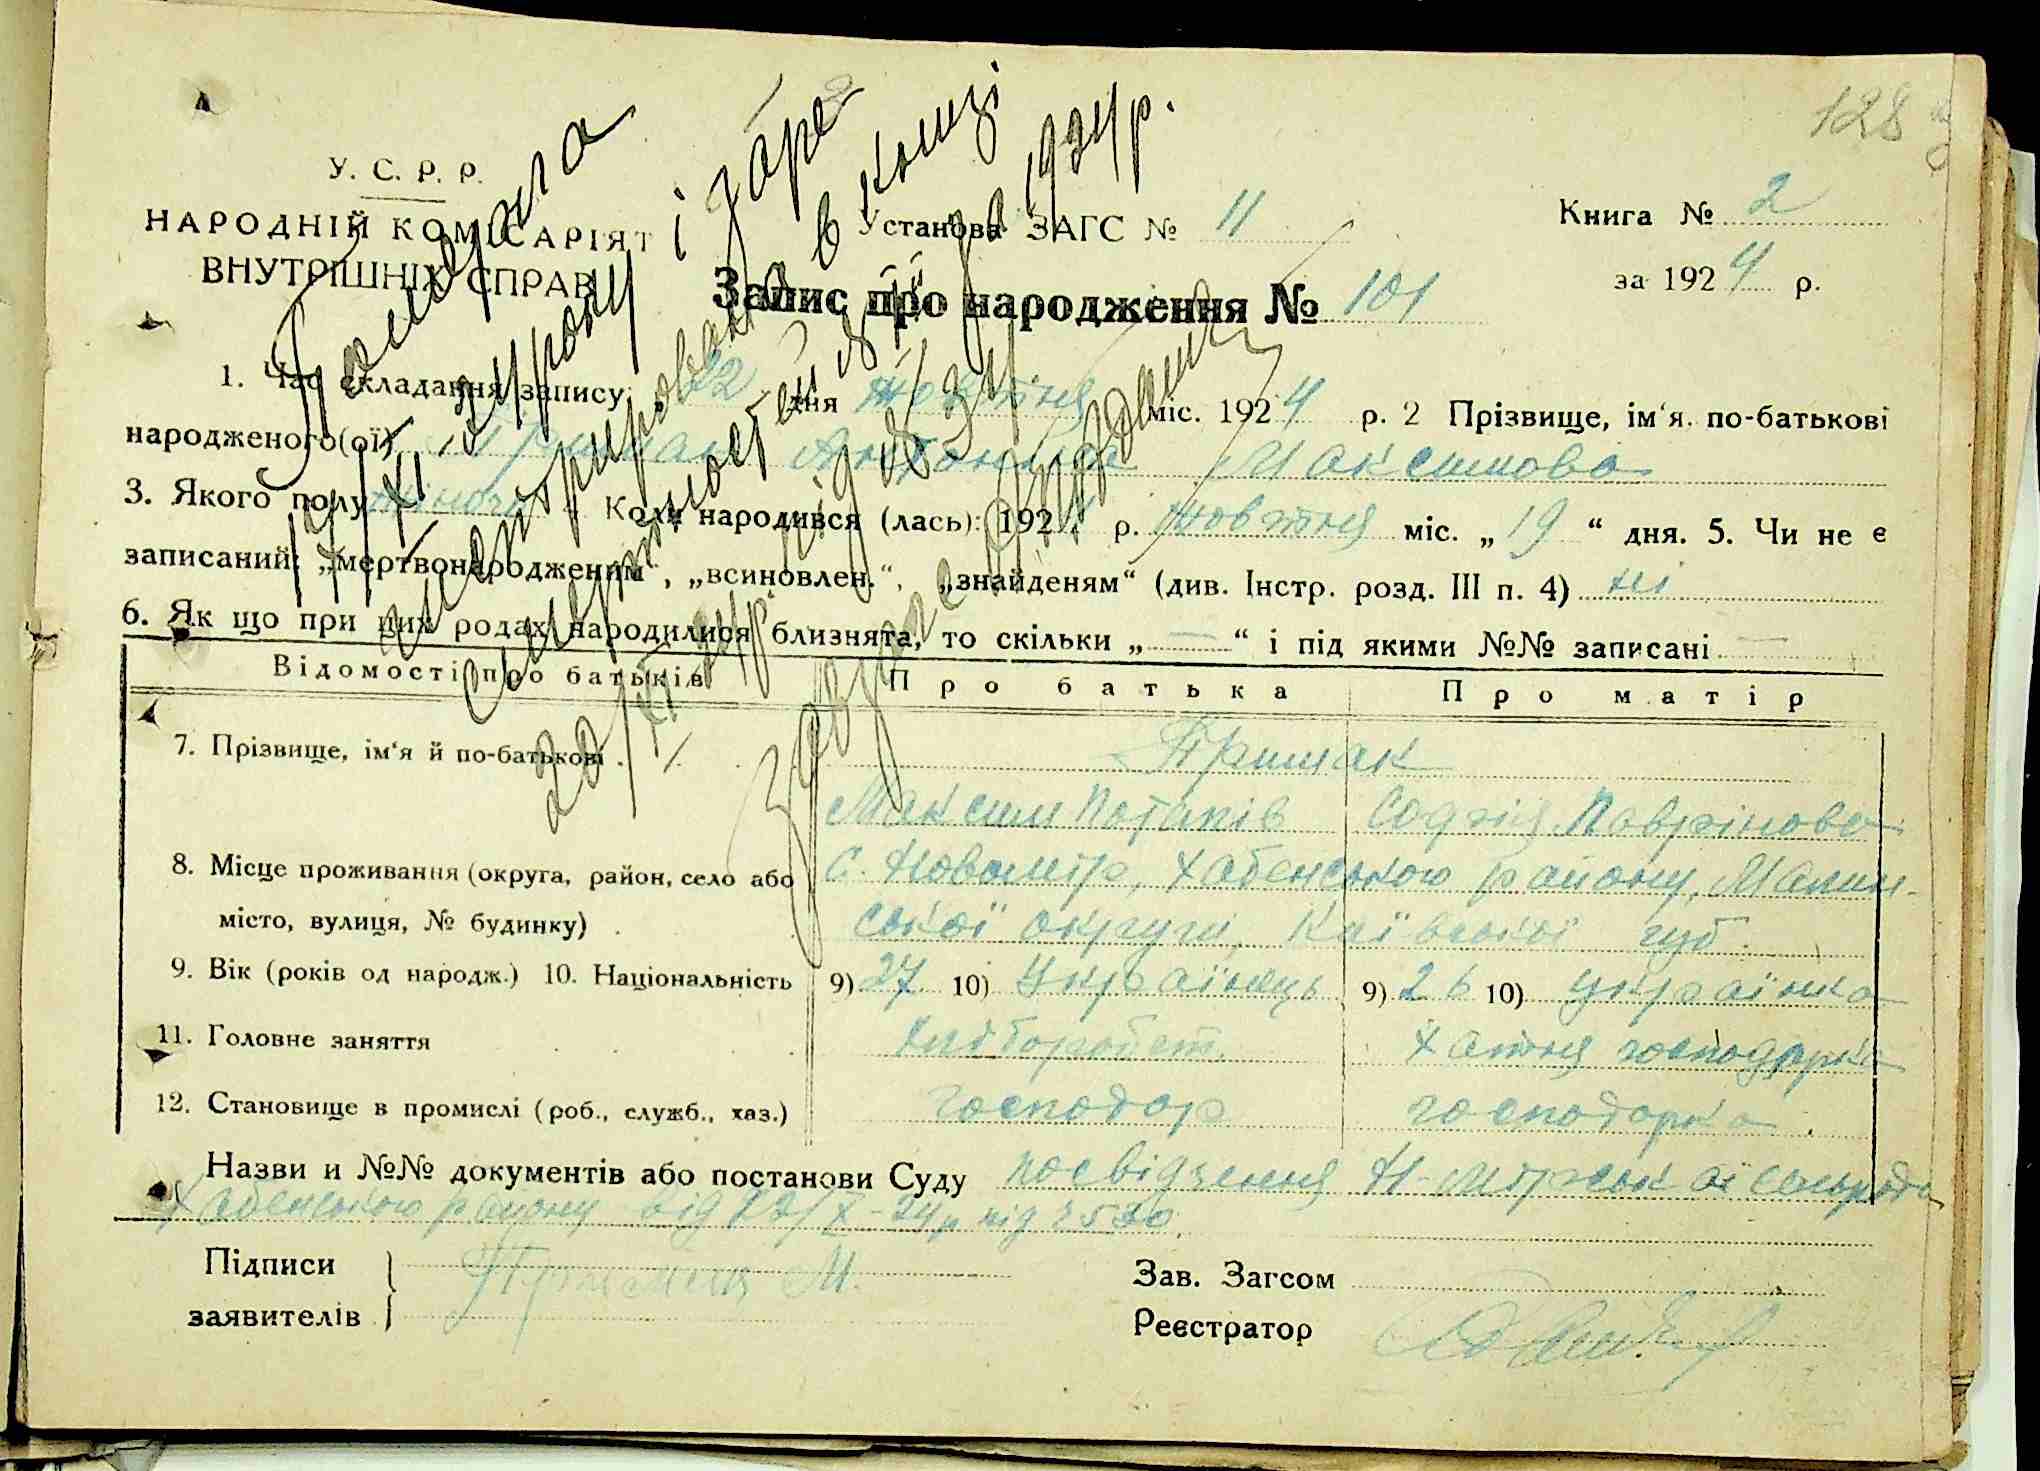 128
У. С. Р. Р.
НАРОДНІЙ КОМІСАРІЯТ
ВНУТРІШНІХ СПРАВ
Установа ЗАГС № 11
Книга № 2
за 1924 р.
Запис про народження № 101
1. Час складання запису: „22“ дня жовтня міс. 1924 р. 2 Прізвище, ім‘я. по-батькові
народженого(ої) Примак Антоніна Максимова
3. Якого полу жіноч. 4. Коли народився (лась): 1924 р. жовтня міс. „19“ дня. 5. Чи не є
записаний: „мертвонародженим“, „всиновлен.“, „знайденям“ (див. Інстр. розд. III п. 4) ні
6. Як що при цих родах народилися близнята, то скільки „—“ і під якими №№ записані —
Відомості про батьків Про батька Про матір
7. Прізвище, ім‘я й по-батькові Примак
Максим Потапів Софія Лаврінова
8. Місце проживання (округа, район, село або С. Новомір, Хабенського району, Малин-
місто, вулиця, № будинку) ської округи, Київської губ.
9. Вік (років од народж.) 10. Національність 9) 27 10) Українець 9) 26 10) українка
11. Головне заняття хлібороб хатня господарка
12. Становище в промислі (роб., служб., хаз.) господар господарка.
Назви и №№ документів або постанови Суду посвідчення Н-Мірської сільради
Хабенського району від 22/X-24р під
Підписи
заявителів
Примак М.
Зав. Загсом
Реєстратор
Померла
14/XI з. року і заре
єстрирована в книзі
смертности за 1924р.
20/XI 24р. під